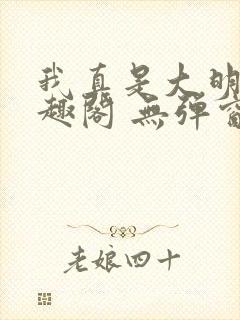 我真是大明
趣閣 無彈窗
老娘四十